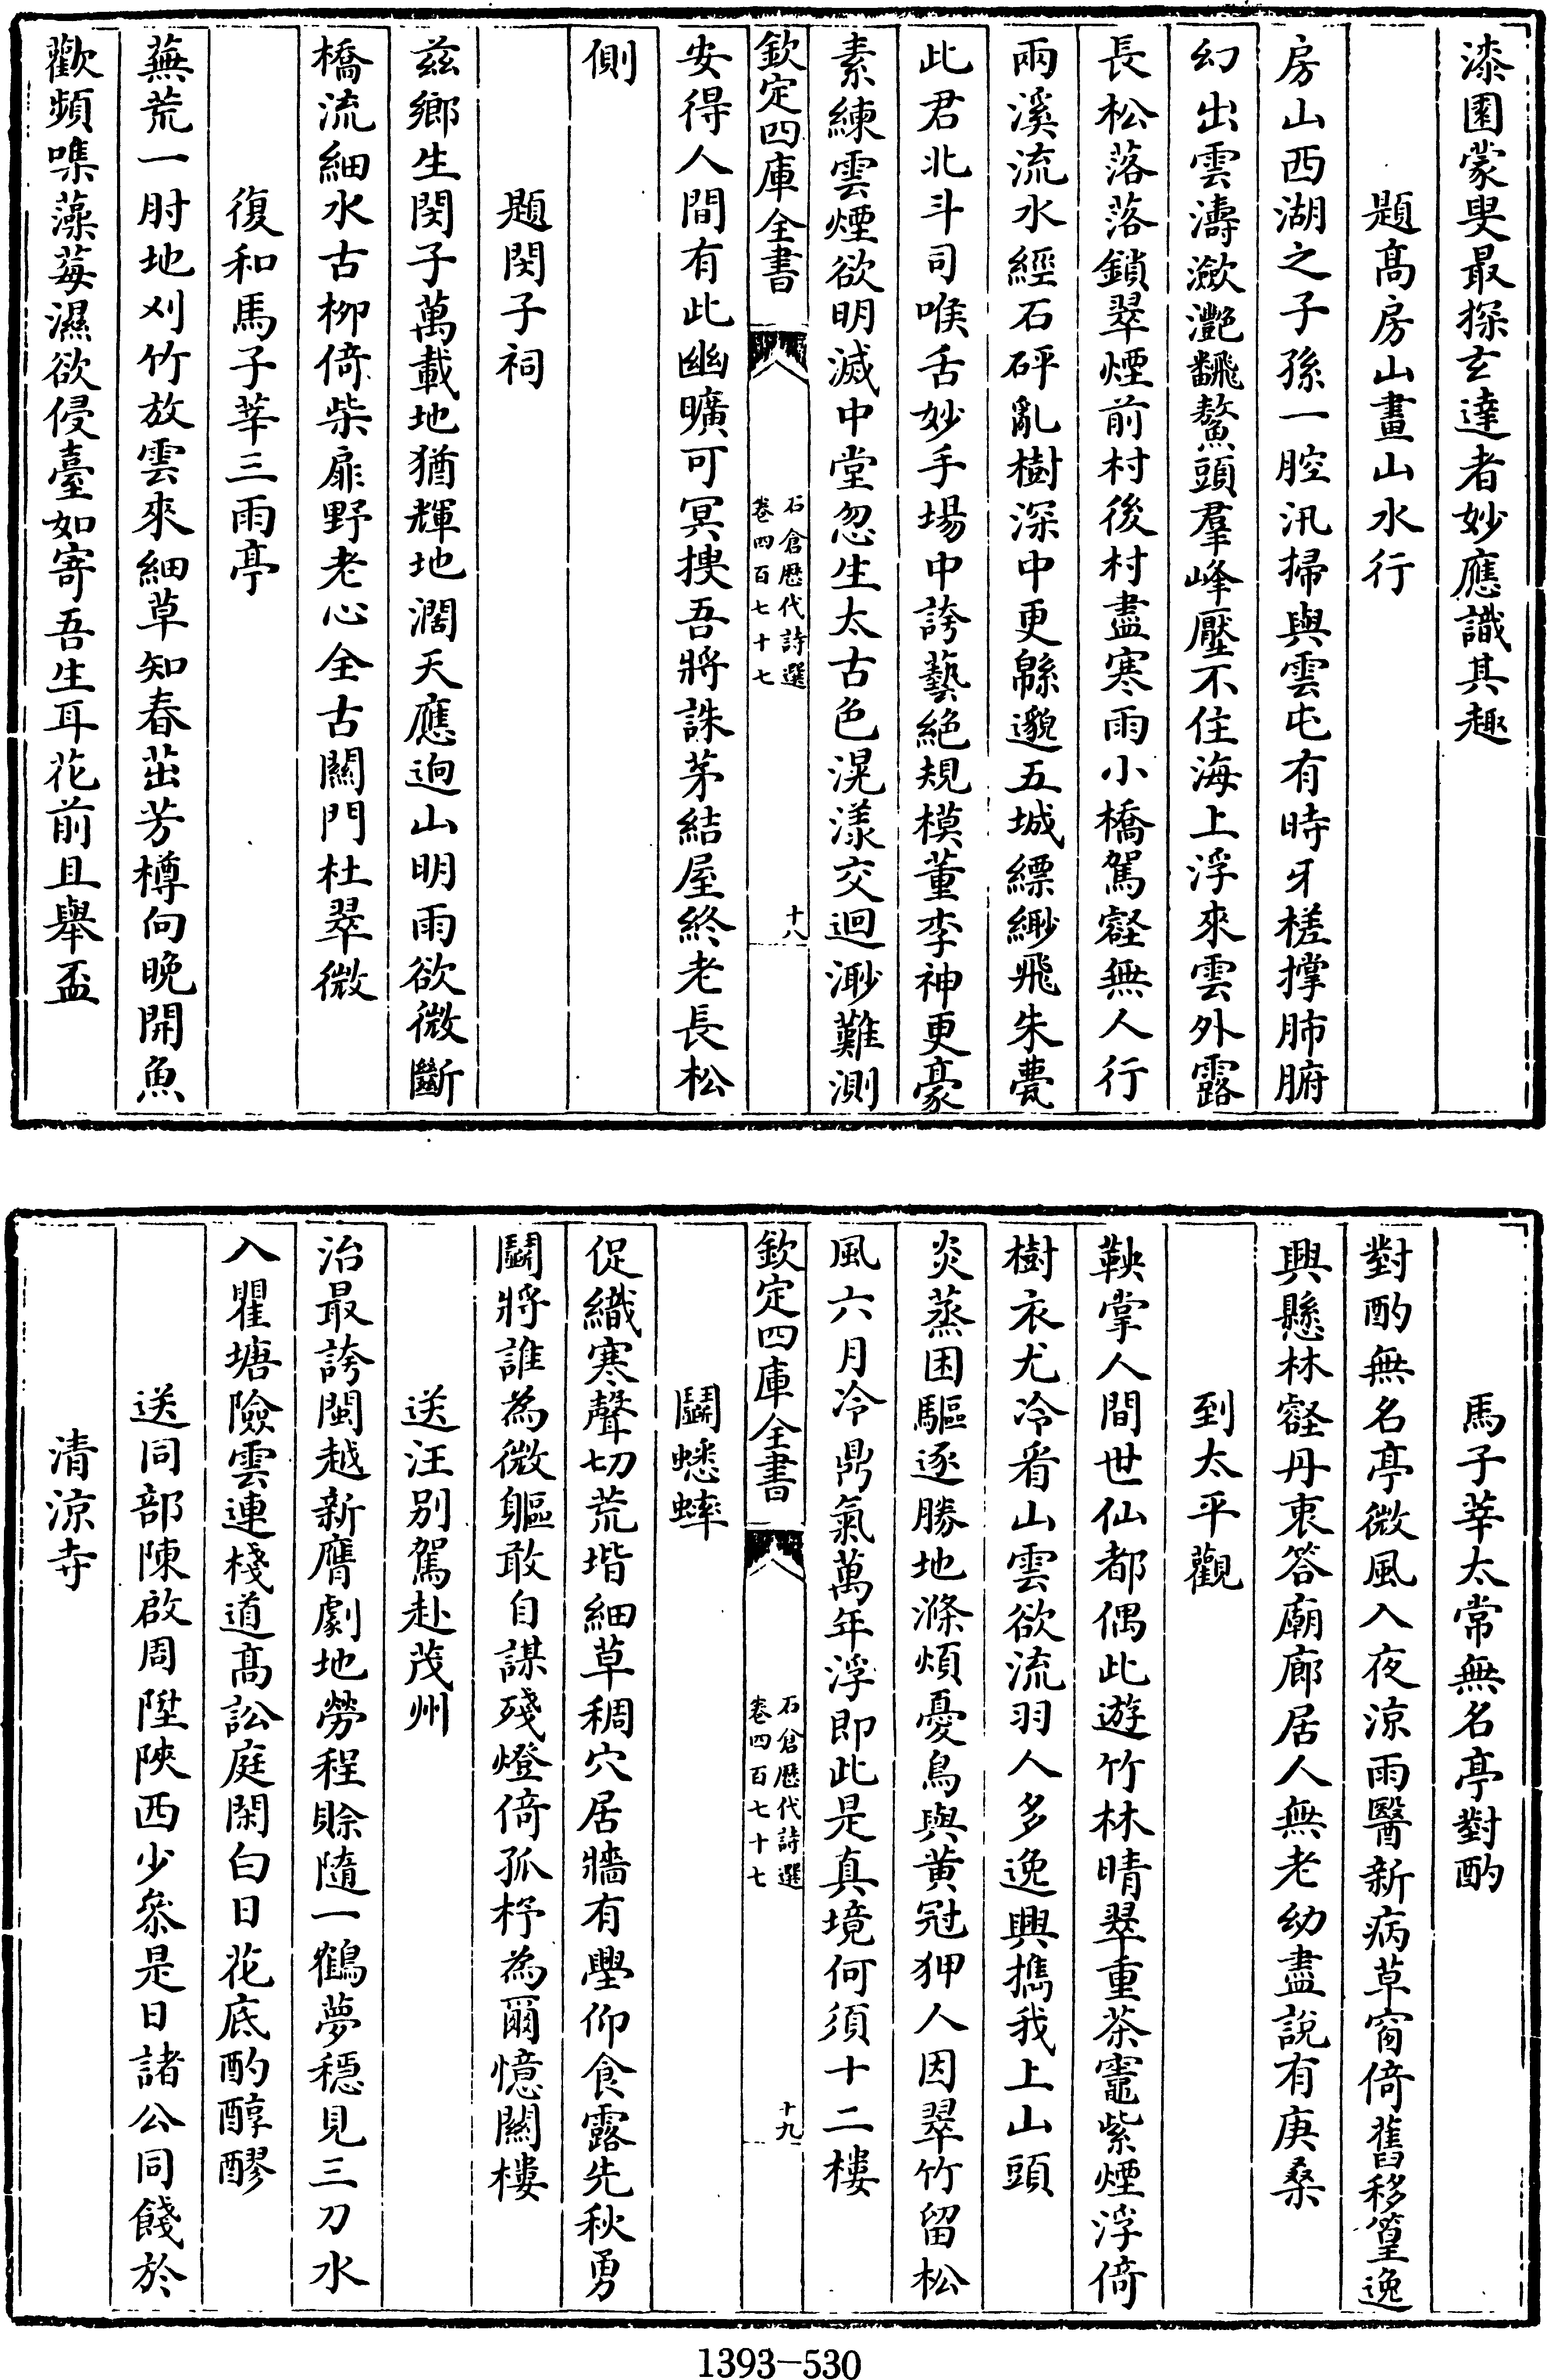 漆園蒙叟最探玄達者妙應識其趣
題髙房山畫山水行
房山西湖之子孫一腔汛掃與雲屯有時牙槎撑肺腑
幻出雲濤瀲灧飜鰲頭羣峰壓不住海上浮來雲外露
長松落落鎖翠煙前村後村盡寒雨小橋駕壑無人行
兩溪流水經石砰亂樹深中更緜邈五城縹緲飛朱甍
此君北斗司喉舌妙手場中誇藝絶規模董李神更豪
素練雲煙欲明滅中堂忽生太古色滉漾交迴渺難測
欽定四庫全書
石倉歴代詩選
卷四百七十七
十八
安得人間有此幽曠可冥搜吾將誅茅結屋終老長松
側
題閔子祠
兹鄉生閔子萬載地猶輝地濶天應逈山明雨欲微斷
橋流細水古柳倚柴扉野老心全古闗門杜翠微
復和馬子莘三雨亭
蕪荒一肘地刈竹放雲來細草知春茁芳樽向晩開魚
歡頻噍藻莓濕欲侵臺如寄吾生耳花前且舉盃
馬子莘太常無名亭對酌
對酌無名亭微風入夜涼雨醫新病草窗倚舊移篁逸
興懸林壑丹衷答廟廊居人無老幼盡說有庚桑
到太平觀
鞅掌人間世仙都偶此遊竹林晴翠重茶竈紫煙浮倚
樹衣尤冷看山雲欲流羽人多逸興攜我上山頭
炎蒸困驅逐勝地滌煩憂鳥與黄冠狎人因翠竹留松
風六月冷鼎氣萬年浮即此是真境何須十二樓
欽定四庫全書
石倉歴代詩選
卷四百七十七
十九
鬭蟋蟀
促織寒聲切荒堦細草稠穴居牆有舋仰食露先秋勇
鬭將誰為微軀敢自謀殘燈倚孤杼為爾憶闗樓
送汪别駕赴茂州
治最誇閩越新膺劇地勞程賒隨一鶴夢穩見三刀水
入瞿塘險雲連棧道髙訟庭閑白日花底酌醇醪
送同部陳啟周陞陜西少叅是日諸公同餞於
清涼寺
1393-530